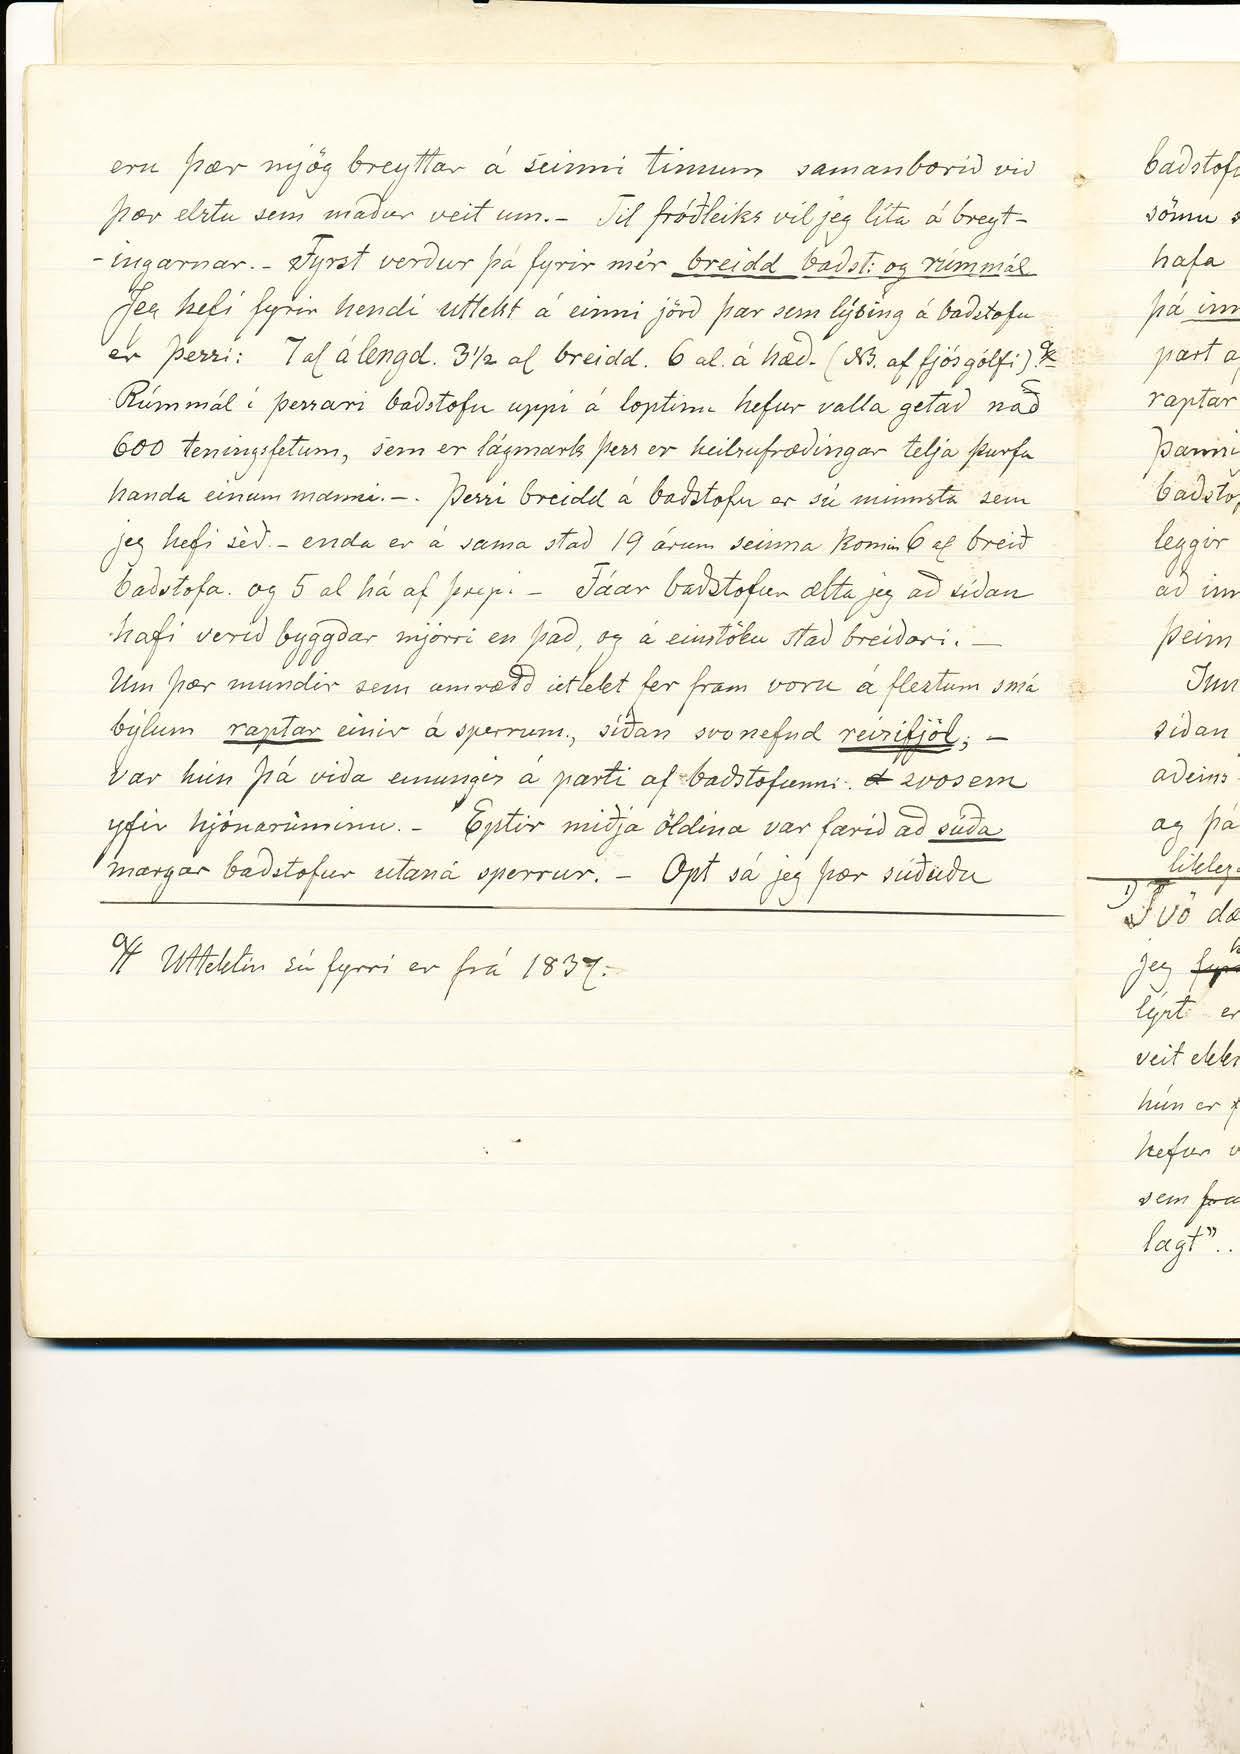 eru þær mjög breyttar á seinni timum samanborið við
þær elztu sem maður veit um. – Til fróðleiks vil jeg líta á breyt-
-ingarnar. – Fyrst verður þá fyrir mér breidd baðst: og rúmmál
Jeg hefi fyrir hendi uttekt á einni jörð þar sem lýsing á baðstofu
er þessi: 7 al á lengd. 3½ al breidd. 6 al. á hæð. (NB. af fjósgólfi).
Rúmmál í þessari baðstofu uppi á loptinu hefur valla getað náð
600 teningsfetum, sem er lágmark þess er heilsufræðingar telja þurfa
handa einum manni. –. Þessi breidd á baðstofu er sú minnsta sem
jeg hefi séð. – enda er á sama stað 19 árum seinna komin 6 al breið
baðstofa. og 5 al há af þrepi – Fáar baðstofur ætla jeg að síðan
hafi verið byggðar mjórri en það, og á einstöku stað breiðari. –
Um þær mundir sem umrædd úttekt fer fram voru á flestum smá
býlum raptar einir á sperrum., síðan svonefnd reisifjöl; –
var hún þá viða einungis á parti af baðstofunni. svosem
yfir hjónarúminu. – Eptir miðja öldina var farið að súða
margar baðstofur utaná sperrur. – Opt sá jeg þær súðuðu
Uttektin sú fyrri er frá 1837.
baðstofu
sömu s
hafa
þá inn
part a
raptar
þanni
baðstof
leggir
að inn
þeim
Inn
síðan
aðeins
og þá
líkleg
1) Tvö dæ
jeg
lýst er
veit ekki
hún er
hefur v
sem
lagt"..